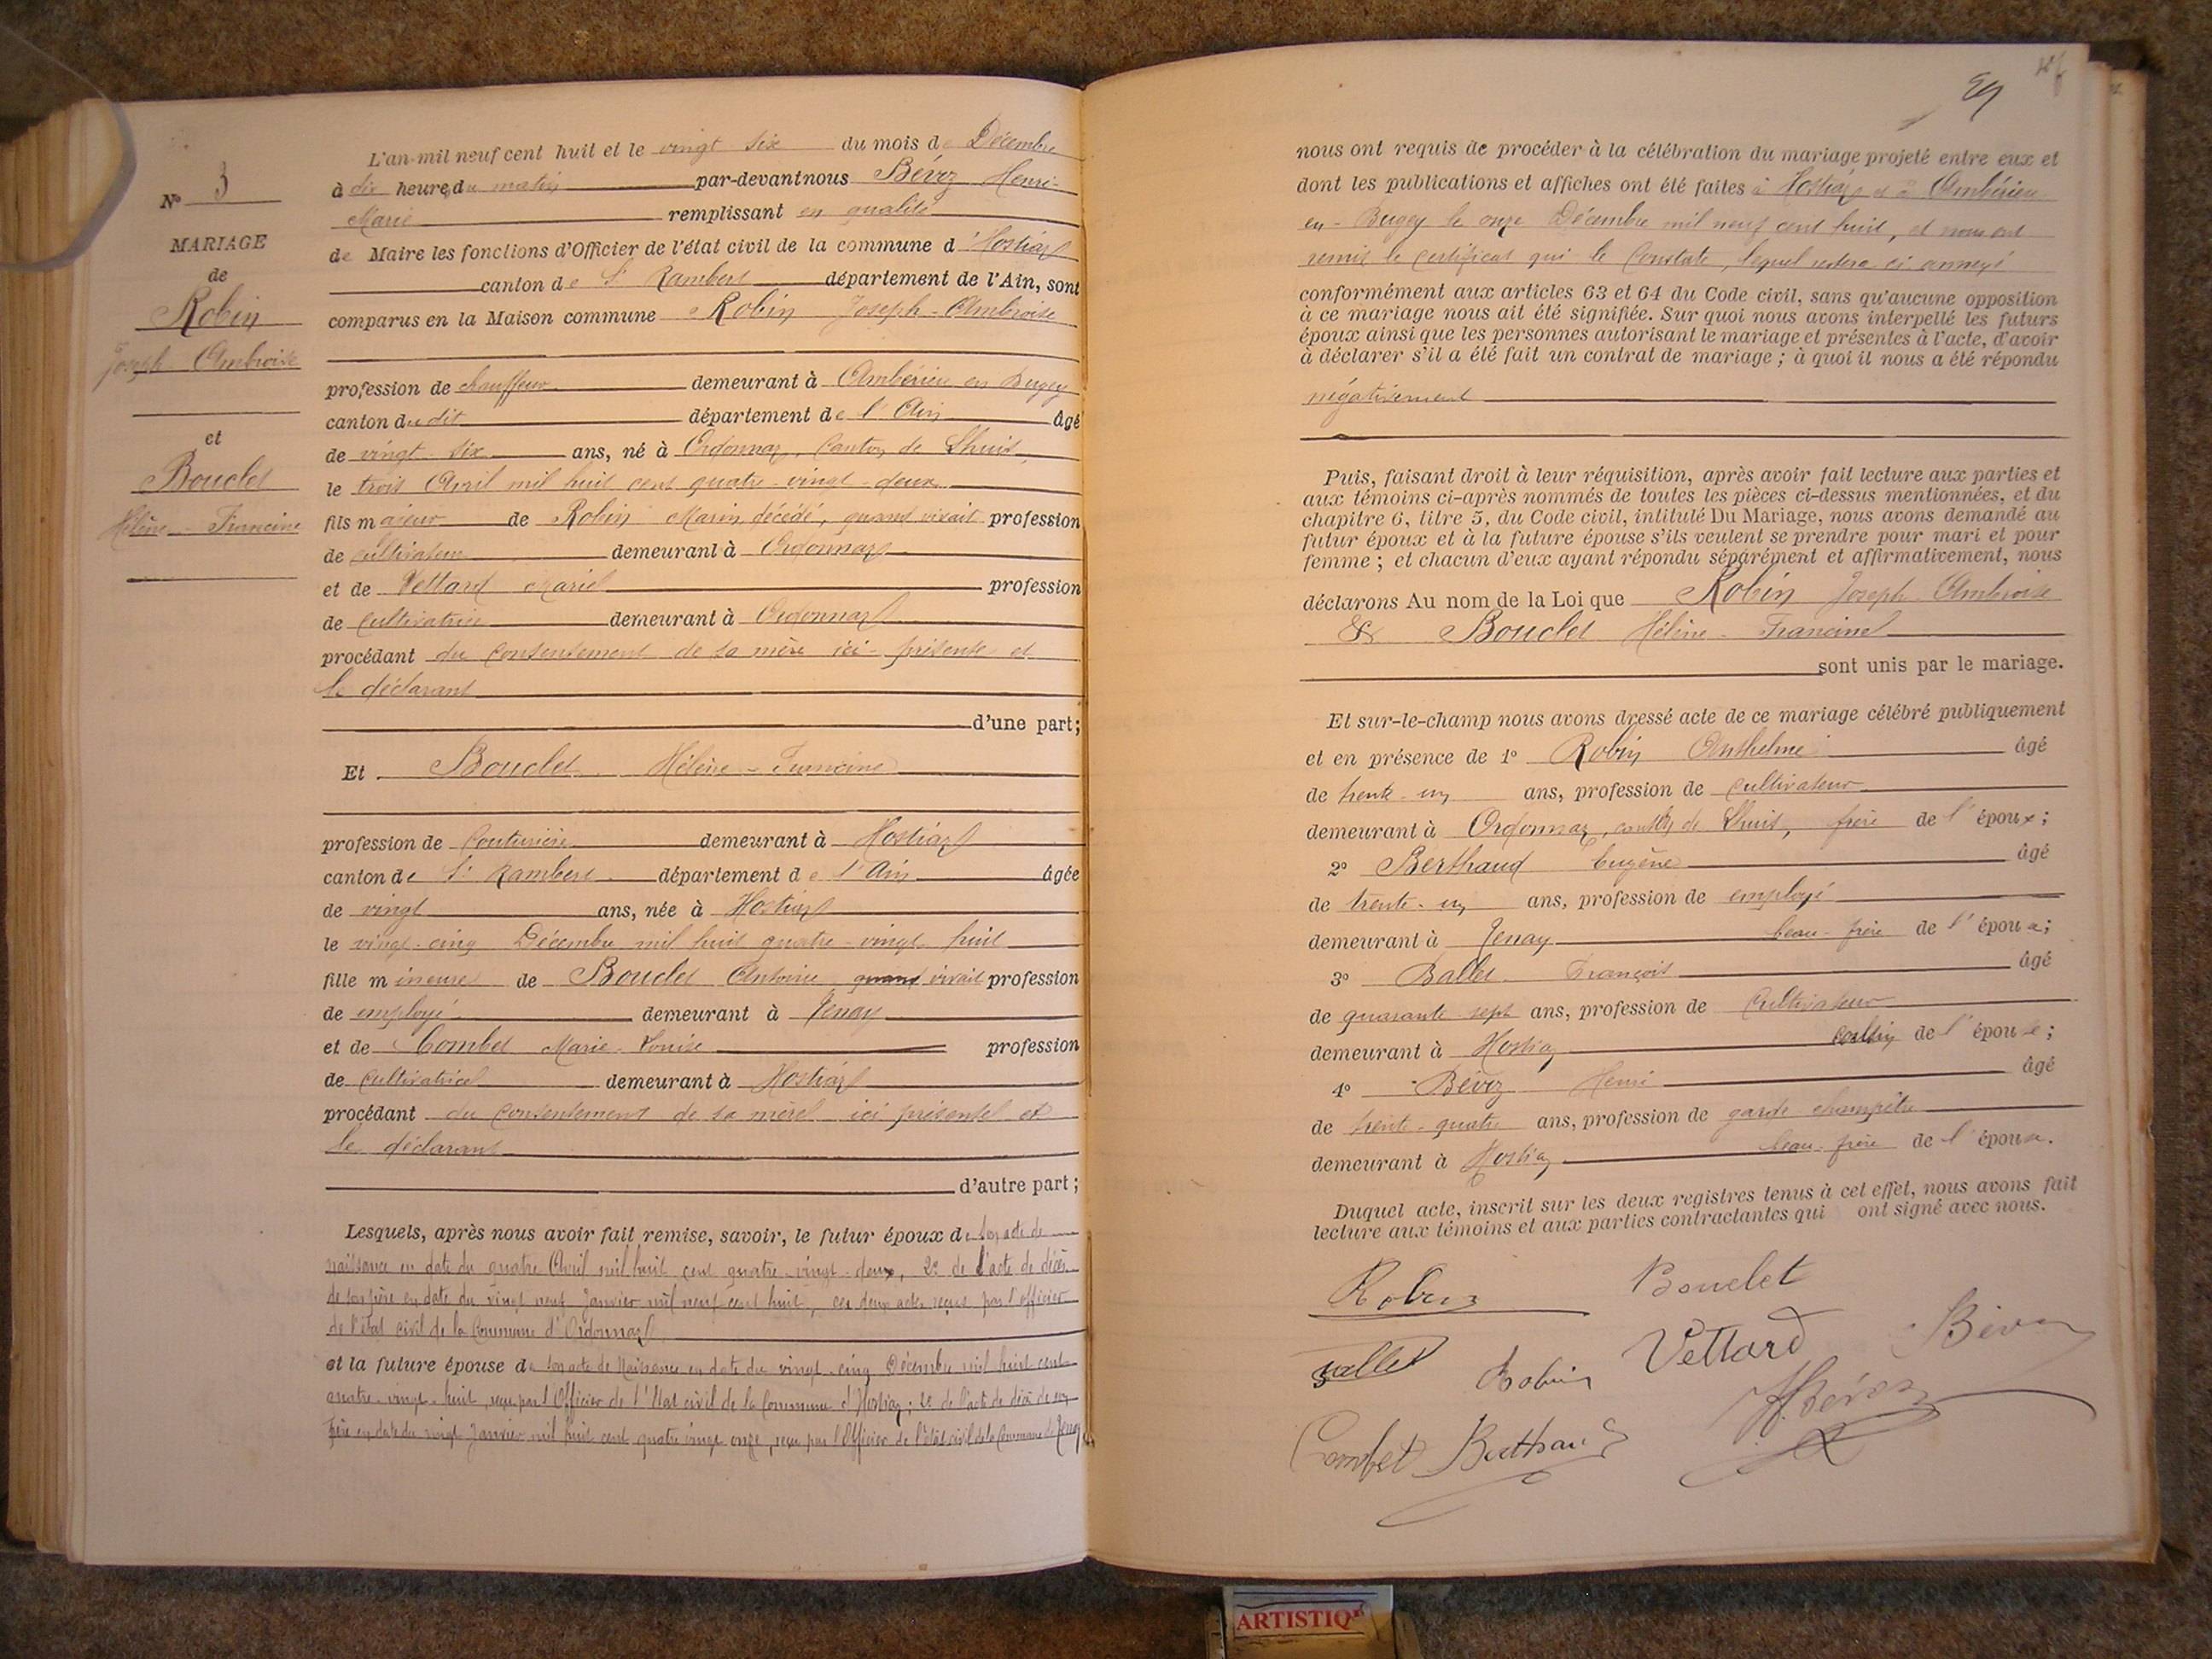 N° 3
MARIAGE
de
Robin
Joseph-Ambroise
et
Bouclet
Hélène-Francine
L'an mil neuf cent huit et le vingt six du mois de Décembre
à dix heure du matin par-devant nous Bévoz Henri-
Marie remplissant en qualité
de Maire les fonctions d'Officier de l'état civil de la commune d'Hostiaz
canton de St Rambert département de l'Ain, sont
comparus en la Maison commune Robin Joseph-Ambroise
profession de chauffeur demeurant à Ambérieu en Bugey
canton du dit département de l'Ain âgé
de vingt-six ans, né à Ordonnaz, Canton de Lhuis,
le trois Avril mil huit cent quatre-vingt-deux
fils majeur de Robin Marin décédé, quand vivait profession
de cultivateur demeurant à Ordonnaz
et de Vettard Marie profession
de Cultivatrice demeurant à Ordonnaz
procédant du consentement de sa mère ici-présente et
le déclarant
d'une part;
Et Bouclet Hélène-Francine
profession de Couturière demeurant à Hostiaz
canton de St Rambert département de l'Ain âgée
de vingt ans, née à Hostiaz
le vingt-cinq Décembre mil huit quatre-vingt huit
fille mineure de Bouclet Antoine quand vivait profession
de employé demeurant à Tenay
et de Combet Marie-Louise profession
de Cultivatrice demeurant à Hostiaz
procédant du consentement de sa mère ici présente et
le déclarant
d'autre part;
Lesquels, après nous avoir fait remise, savoir, le futur époux de son acte de
naissance en date du quatre Avril mil huit cent quatre-vingt-deux, 2° de l'acte de décès
de son père en date du vingt neuf Janvier mil neuf cent huit, ces deux actes reçus par l'officier
de l'état civil de la Commune d'Ordonnaz
et la future épouse de son acte de Naissance en date du vingt-cinq Décembre mil huit cent
quatre-vingt-huit, reçu par l'Officier de l'Etat civil de la Commune d'Hostiaz; 2° de l'acte de décès de son
Père en date du vingt Janvier mil huit cent quatre vingt onze, reçu par l'Officier de l'état civil de la Commune de Tenay
nous ont requis de procéder à la célébration du mariage projeté entre eux et
dont les publications et affiches ont été faites à Hostiaz et à Ambérieu
en-Bugey le onze Décembre mil neuf cent huit, et nous ont
remis le certificat qui le Constate, lequel restera ci annexé
conformément aux articles 63 et 64 du Code civil, sans qu'aucune opposition
à ce mariage nous ait été signifiée. Sur quoi nous avons interpellé les futurs
époux ainsi que les personnes autorisant le mariage et présentes à l'acte, d'avoir
à déclarer s'il a été fait un contrat de mariage; à quoi il nous a été répondu
négativement
Puis, faisant droit à leur réquisition, après avoir fait lecture aux parties et
aux témoins ci-après nommés de toutes les pièces ci-dessus mentionnées, et du
chapitre 6, titre 5, du Code civil, intitulé Du Mariage, nous avons demandé au
futur époux et à la future épouse s'ils veulent se prendre pour mari et pour
femme; et chacun d'eux ayant répondu séparément et affirmativement, nous
déclarons Au nom de la Loi que Robin Joseph-Ambroise
& Bouclet Hélène-Francine
sont unis par le mariage.
Et sur-le-champ nous avons dressé acte de ce mariage célébré publiquement
et en présence de 1° Robin Anthelme âgé
de trente-un ans, profession de cultivateur
demeurant à Ordonnaz, canton de Lhuis, frère de l'époux;
2° Berthaud Eugène âgé
de trente-un ans, profession de employé
demeurant à Tenay beau-frère de l'épou
3° Ballet François âgé
de quarante-sept ans, profession de Cultivateur
demeurant à Hostiaz cousin de l'épouse;
4° Bévoz Henri âgé
de trente-quatre ans, profession de garde champêtre
demeurant à Hostiaz beau-frère de l'épouse.
Duquel acte, inscrit sur les deux registres tenus à cet effet, nous avons fait
lecture aux témoins et aux parties contractantes qui ont signé avec nous.
Robin Bouclet
Ballet Robin Vettard Bévoz
Combet Berthaud H Bévoz
ARTISTIQ